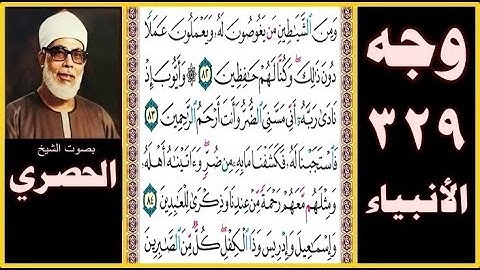 وجه
٣٢٩
الأنبياء
وَمِنَ ٱلشَّيَٰطِينِ مَن يَغُوصُونَ لَهُۥ وَيَعْمَلُونَ عَمَلًا
دُونَ ذَٰلِكَۖ وَكُنَّا لَهُمْ حَٰفِظِينَ ٨٢ ۞ وَأَيُّوبَ إِذْ
نَادَىٰ رَبَّهُۥٓ أَنِّي مَسَّنِيَ ٱلضُّرُّ وَأَنتَ أَرْحَمُ ٱلرَّٰحِمِينَ ٨٣
فَٱسْتَجَبْنَا لَهُۥ فَكَشَفْنَا مَا بِهِۦ مِن ضُرٍّۖ وَءَاتَيْنَٰهُ أَهْلَهُۥ
وَمِثْلَهُم مَّعَهُمْ رَحْمَةً مِّنْ عِندِنَا وَذِكْرَىٰ لِلْعَٰبِدِينَ ٨٤
وَإِسْمَٰعِيلَ وَإِدْرِيسَ وَذَا ٱلْكِفْلِۖ كُلٌّ مِّنَ ٱلصَّٰبِرِينَ
بصوت الشيخ
الحصري